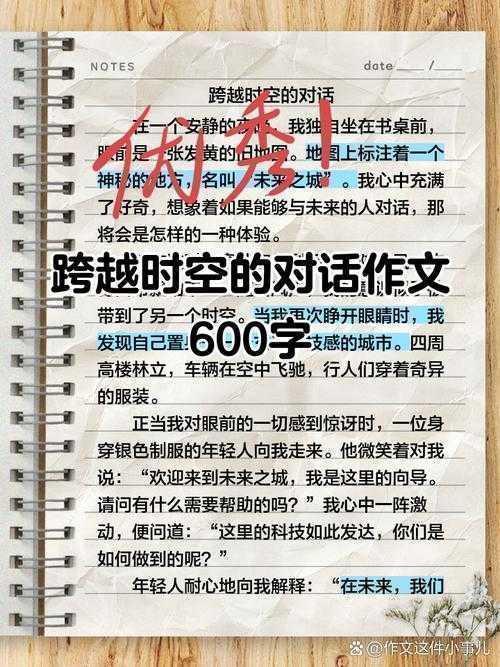 NOTES
date ___ /___
跨越时空的对话
在一个安静的夜晚，我独自坐在书桌前，
眼前是一张发黄的旧地图。地图上标注着一个
神秘的地方，名叫“未来之城”。我心中充满
了好奇，想象着如果能够与未来的人对话，那
将会是怎样的一种体验。
优秀！
跨越时空的对话作文
600字
带到了另一个时空。当我再次睁开眼睛时，我
发现自己置 技感的城市。四周
高楼林立，车辆在空中飞驰，行人们穿着奇异
的服装。
正当我对眼前的一切感到惊讶时，一位身
穿银色制服的年轻人向我走来。他微笑着对我
说：“欢迎来到未来之城，我是这里的向导。
请问有什么需要帮助的吗？”我心中一阵激
动，便问道：“这里的科技如此发达，你们是
如何做到的呢？”
年轻人耐心地向我解释：“在未来，我们
@作文这件小事儿